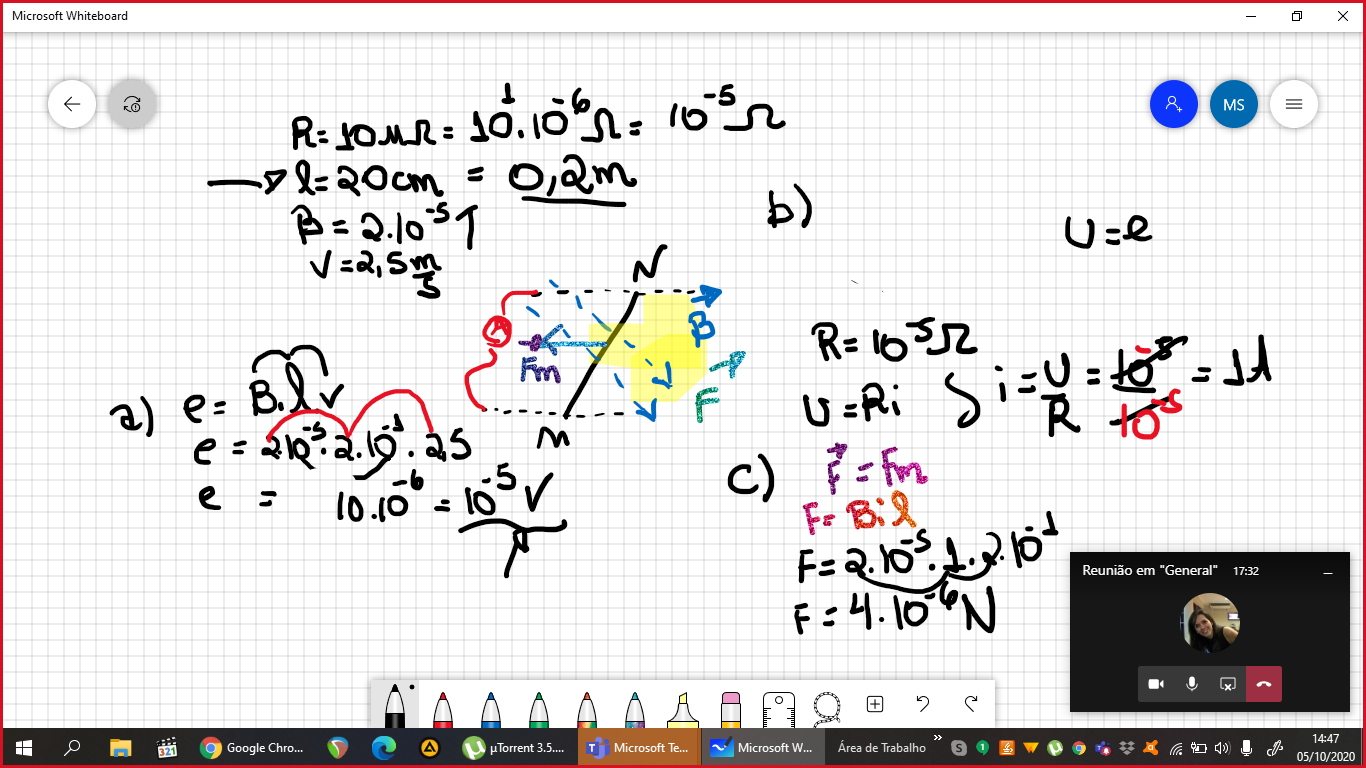 Microsoft Whiteboard
MS
R=10μΩ = 10¹.10⁻⁶Ω = 10⁻⁵Ω
l=20cm = 0,2m
B = 2.10⁻⁵ T
V = 2,5 m/s
N
B
Fm
F
M
a) e = B.l v
e = 2.10⁻⁵.2.10⁻¹.2,5
e = 10.10⁻⁶ = 10⁻⁵ V
b)
U=e
R = 10⁻⁵Ω
U=Ri
i = U/R = 10⁻⁵/10⁻⁵ = 1A
c) F = Fm
F= Bil
F= 2.10⁻⁵.1.2.10⁻¹
F = 4.10⁻⁶N
Reunião em "General" 17:32
321
Google Chro...
μTorrent 3.5....
Microsoft Te...
Microsoft W...
Área de Trabalho
»
14:47
05/10/2020